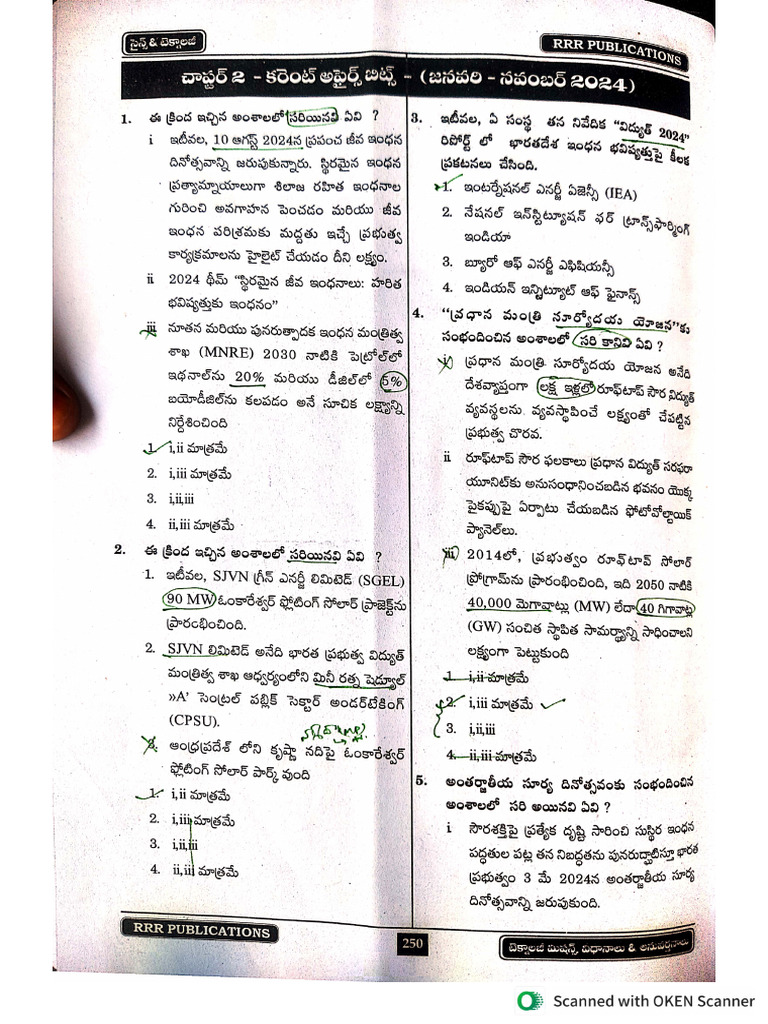 సైన్స్ & టెక్నాలజీ
RRR PUBLICATIONS
చాప్టర్ 2 - కరెంట్ అఫైర్స్ బిట్స్ - (జనవరి - నవంబర్ 2024)
1. ఈ క్రింద ఇచ్చిన అంశాలలో సరియినవి ఏవి ?
i ఇటీవల, 10 ఆగస్ట్ 2024న ప్రపంచ జీవ ఇంధన
దినోత్సవాన్ని జరుపుకున్నారు. స్థిరమైన ఇంధన
ప్రత్యామ్నాయాలుగా శిలాజ రహిత ఇంధనాల
గురించి అవగాహన పెంచడం మరియు జీవ
ఇంధన పరిశ్రమకు మద్దతు ఇచ్చే ప్రభుత్వ
కార్యక్రమాలను హైలైట్ చేయడం దీని లక్ష్యం.
ii 2024 థీమ్ “స్థిరమైన జీవ ఇంధనాలు: హరిత
భవిష్యత్తుకు ఇంధనం”
iii నూతన మరియు పునరుత్పాదక ఇంధన మంత్రిత్వ
శాఖ (MNRE) 2030 నాటికి పెట్రోల్‌లో
ఇథనాల్‌ను 20% మరియు డీజిల్‌లో 5%
బయోడీజిల్‌ను కలపడం అనే సూచిక లక్ష్యాన్ని
నిర్దేశించింది
1. i,ii మాత్రమే
2. i,iii మాత్రమే
3. i,ii,iii
4. ii,iii మాత్రమే
2. ఈ క్రింద ఇచ్చిన అంశాలలో సరియినవి ఏవి ?
1. ఇటీవల, SJVN గ్రీన్ ఎనర్జీ లిమిటెడ్ (SGEL)
90 MW ఓంకారేశ్వర్ ఫ్లోటింగ్ సోలార్ ప్రాజెక్ట్‌ను
ప్రారంభించింది.
2. SJVN లిమిటెడ్ అనేది భారత ప్రభుత్వ విద్యుత్
మంత్రిత్వ శాఖ ఆధ్వర్యంలోని మినీ రత్న షెడ్యూల్
»A' సెంట్రల్ పబ్లిక్ సెక్టార్ అండర్‌టేకింగ్
(CPSU).
3. ఆంధ్రప్రదేశ్ లోని కృష్ణా నదిపై ఓంకారేశ్వర్
ఫ్లోటింగ్ సోలార్ పార్క్ వుంది
1. i,ii మాత్రమే
2. i,iii మాత్రమే
3. i,ii,iii
4. ii,iii మాత్రమే
3. ఇటీవల, ఏ సంస్థ తన నివేదిక “విద్యుత్ 2024”
రిపోర్ట్ లో భారతదేశ ఇంధన భవిష్యత్తుపై కీలక
ప్రకటనలు చేసింది.
1. ఇంటర్నేషనల్ ఎనర్జీ ఏజెన్సీ (IEA)
2. నేషనల్ ఇన్‌స్టిట్యూషన్ ఫర్ ట్రాన్స్‌ఫార్మింగ్
ఇండియా
3. బ్యూరో ఆఫ్ ఎనర్జీ ఎఫిషియన్సీ
4. ఇండియన్ ఇన్స్టిట్యూట్ ఆఫ్ ఫైనాన్స్
4. “ప్రధాన మంత్రి సూర్యోదయ యోజన”కు
సంభందించిన అంశాలలో సరి కానివి ఏవి ?
i ప్రధాన మంత్రి సూర్యోదయ యోజన అనేది
దేశవ్యాప్తంగా లక్ష ఇళ్లలో రూఫ్‌టాప్ సౌర విద్యుత్
వ్యవస్థలను వ్యవస్థాపించే లక్ష్యంతో చేపట్టిన
ప్రభుత్వ చొరవ.
ii రూఫ్‌టాప్ సౌర ఫలకాలు ప్రధాన విద్యుత్ సరఫరా
యూనిట్‌కు అనుసంధానించబడిన భవనం యొక్క
పైకప్పుపై ఏర్పాటు చేయబడిన ఫోటోవోల్టాయిక్
ప్యానెల్‌లు.
iii 2014లో, ప్రభుత్వం రూఫ్‌టావ్ సోలార్
ప్రోగ్రామ్‌ను ప్రారంభించింది, ఇది 2050 నాటికి
40,000 మెగావాట్లు (MW) లేదా 40 గిగావాట్ల
(GW) సంచిత స్థాపిత సామర్థ్యాన్ని సాధించాలని
లక్ష్యంగా పెట్టుకుంది
1. i,ii మాత్రమే
2. i,iii మాత్రమే
3. i,ii,iii
4. ii,iii మాత్రమే
5. అంతర్జాతీయ సూర్య దినోత్సవంకు సంభందించిన
అంశాలలో సరి అయినవి ఏవి ?
i సౌరశక్తిపై ప్రత్యేక దృష్టి సారించి సుస్థిర ఇంధన
పద్ధతుల పట్ల తన నిబద్ధతను పునరుద్ఘాటిస్తూ భారత
ప్రభుత్వం 3 మే 2024న అంతర్జాతీయ సూర్య
దినోత్సవాన్ని జరుపుకుంది.
RRR PUBLICATIONS
250
టెక్నాలజీ మిషన్స్, విధానాలు & అనువర్తనాలు
Scanned with OKEN Scanner